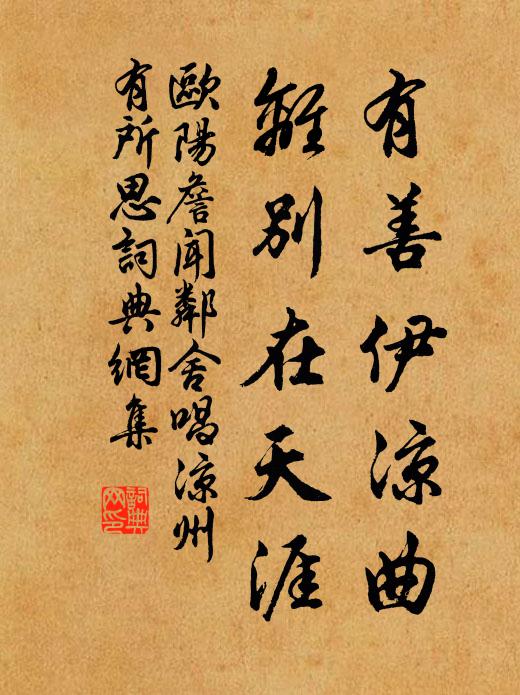 有善伊涼曲
離別在天涯
歐陽詹聞鄰舍唱涼州
有所思詞典網集
詞典網印